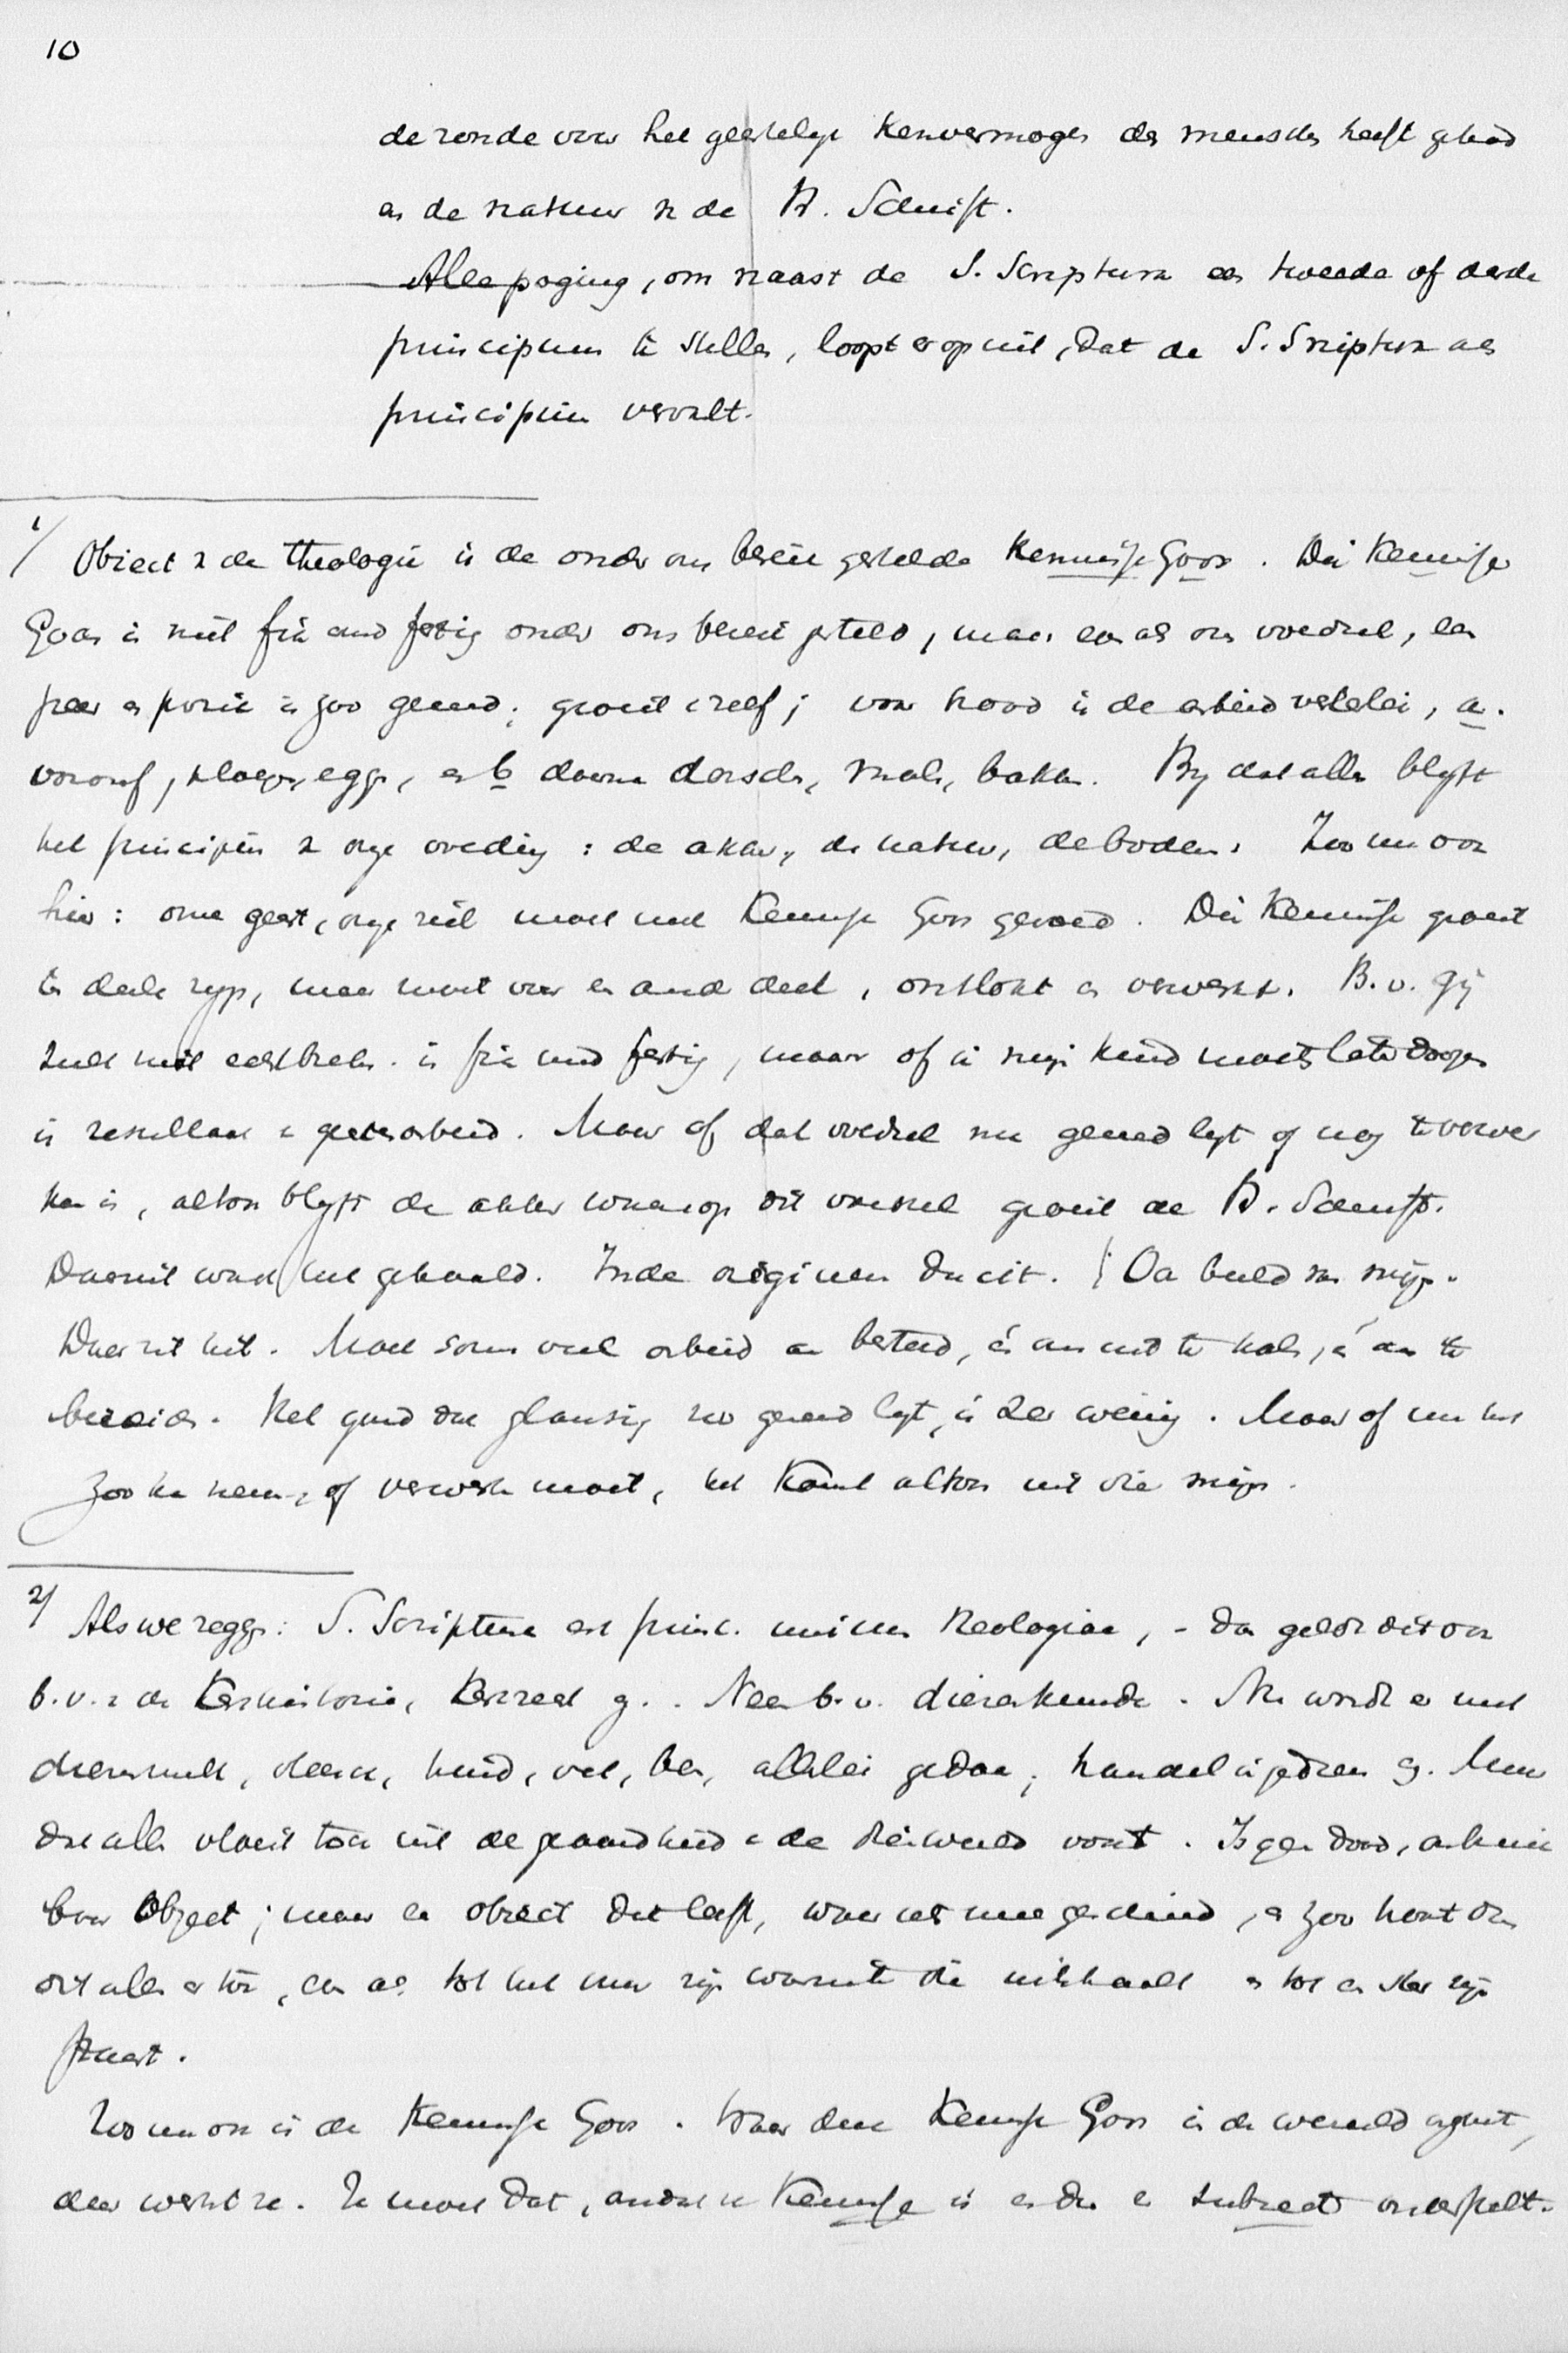 10
de zonde voor het geestelijk kenvermogen des menschen heeft gehad
en de natuur en de H. Schrift.
Alle poging, om naast de S. Scriptura een tweede of derde
principium te stellen, loopt er op uit, dat de S. Scriptura als
principium vervalt.
1/ Object v de theologie is de onder ons bereik gestelde Kennisse Gods. Die Kennisse
Gods is niet fix und fertig onder ons bereik gesteld, maar even als ons voedsel, een
peer en perzik is zoo gereed; groeit vzelf; voor brood is de arbeid velerlei, a.
vooraf, ploegen, eggen, en b daarna dorschen, malen, bakken. By dat alles blyft
het principium v onze voeding: de akker, de natuur, de bodem. Zoo nu ook
hier: onze geest, onze ziel moet met Kennisse Gods gevoed. Die Kennisse groeit
ten deele ryp, maar moet voor een ander deel, ontbolst en verwerkt. B.v. Gij
zult niet echtbreken is fix und fertig, maar of ik mijn kind moet laten doopen
is resultaat v geestesarbeid. Maar of dat voedsel nu gereed ligt of nog te verwer
ken is, altoos blyft de akker waarop dit voedsel groeit de H. Schrift.
Daaruit wordt het gehaald. Inde originem ducit. Oa beeld van mijn.
Daar zit het. Moet soms veel arbeid aan besteed, én om uit te halen, én om te
bereiden. Het goud dat glanzig zoo gereed ligt, is zeer weinig. Maar of men het
zoo kan nemen, of verwerken moet, het komt altoos uit die mijn.
2/ Als we zeggen: S. Scriptura est princ. unicum theologiae, - dan geldt dit ook
b.v. v de Kerkhistorie, Kerkrecht enz. Neem b.v. dierenkunde. Nu wordt er met
dierenmelk, vleesch, huid, vet, been, allerlei gedaan; handel in gedreven enz. Maar
dat alles vloeit toch uit de gesteldheid v de dierenwereld voort. Is geen dood,
baar Object; maar een object dat leeft, waar iets mee gedaan wordt, en zoo hoort ook
dit alles er toe, even als tot het vuur zijn warmte die uitstraalt en tot een ster zijn
Zoo nu ook is de Kennisse Gods. Waar deze Kennisse Gods in de wereld ingaat,
daar werkt ze. Ze moet dat, anders is Kennisse is er dan een subject onderstelt.